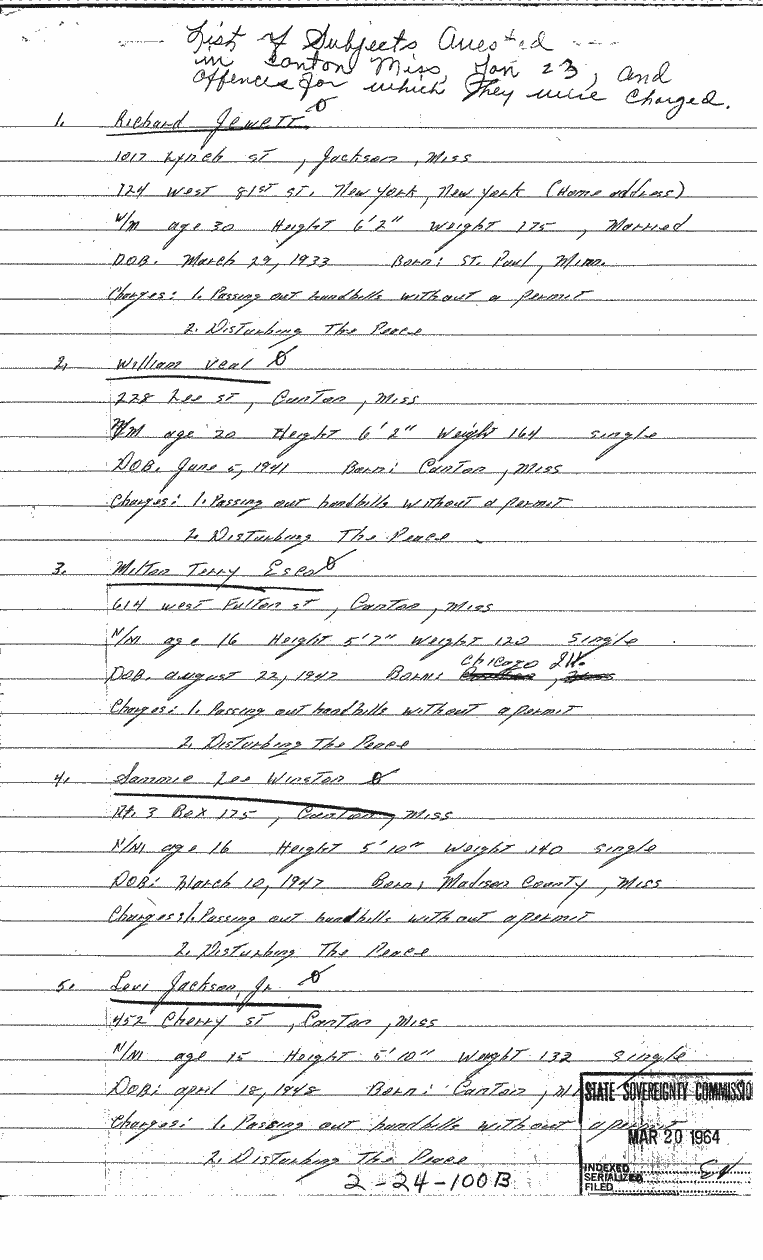 List of Subjects Arrested
in Canton Miss, Jan 23, and
offences for which They were Charged.
1. Richard Jewett
1017 Lynch st, Jackson, Miss
724 West 81st st. New York, New York (Home address)
W/M age 30 Height 6'2" Weight 175, Married
DOB. March 29, 1933 Born: St. Paul, Minn.
Charges: 1. Passing out handbills without a permit
2. Disturbing The Peace
2. William Veal
228 Lee st, Canton, Miss
N/M age 20 Height 6'2" Weight 164 Single
DOB. June 5, 1941 Born: Canton, Miss
Charges: 1. Passing out handbills without a permit
2. Disturbing The Peace
3. Milton Terry Esco
614 West Fulton st, Canton, Miss
N/M age 16 Height 5'7" Weight 120 Single
DOB. August 22, 1947 Born: Chicago Ill.
Charges: 1. Passing out handbills without a permit
2. Disturbing The Peace
4. Sammie Lee Winston
Rt. 3 Box 175, Canton, Miss
N/M age 16 Height 5'10" Weight 140 Single
DOB: March 10, 1947 Born: Madison County, Miss
Charges: 1. Passing out handbills without a permit
2. Disturbing The Peace
5. Levi Jackson, Jr
452 Cherry st, Canton, Miss
N/M age 15 Height 5'10" Weight 132 Single
DOB: April 18, 1948 Born: Canton, Mi
STATE SOVEREIGNTY COMMISSIO
Charges: 1. Passing out handbills without a permit
MAR 20 1964
2. Disturbing The Peace
INDEXED
SERIALIZED
FILED
2-24-100B